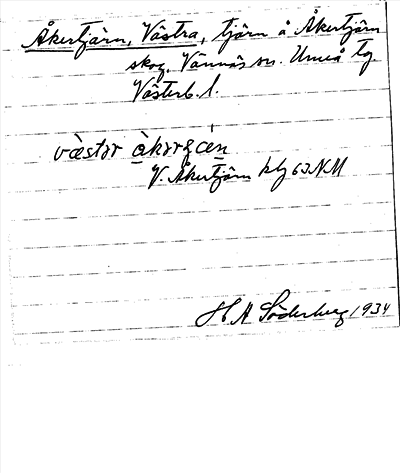 Åkertjärn, Västra, tjärn å Åkertjärn
skog, Vännäs sn. Umeå tg.
Västerb. l.
V. Åkertjärn kbg 63 NM
H A Söderberg 1934